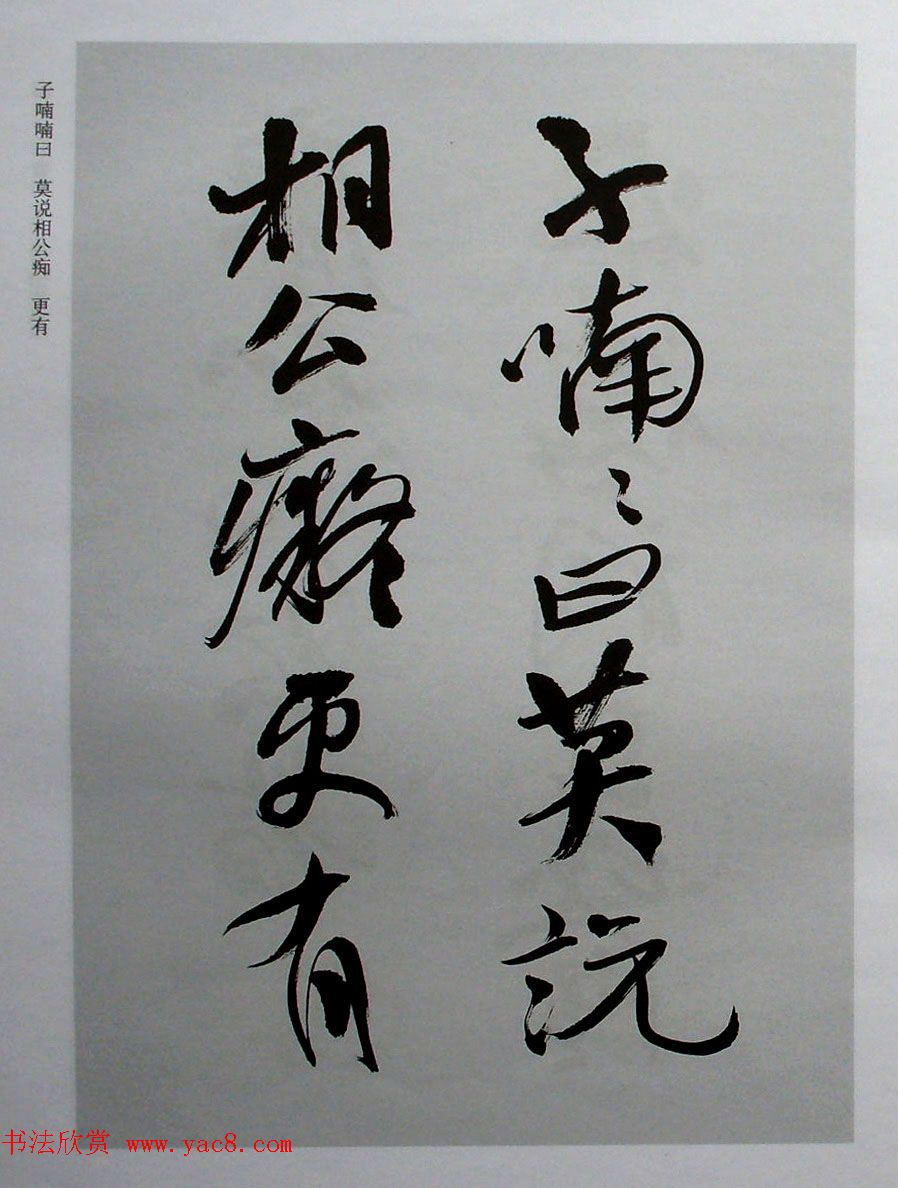 子喃〻曰莫説
相公癡更有
子喃喃曰 莫说相公痴 更有
书法欣赏 www.yac8.com